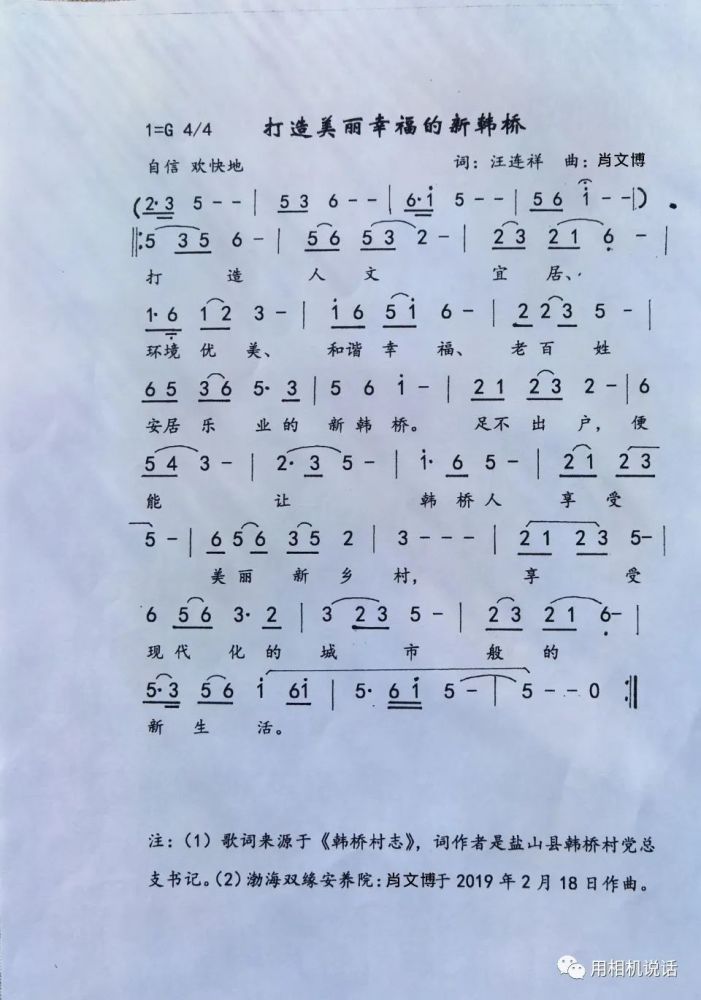 1=G 4/4 打造美丽幸福的新韩桥
自信 欢快地 词：汪连祥 曲：肖文博
(2·3 5 - - | 5 3 6 - - | 6·i 5 - - | 5 6 i - - |)
‖: 5 3 5 6 - | 5 6 5 3 2 - | 2 3 2 1 6 - |
打 造 人 文 宜 居、
1· 6 1 2 3 - | i 6 5 i 6 - | 2 2 2 3 5 - |
环境 优 美、 和谐 幸 福、 老 百 姓
6 5 3 6 5· 3 | 5 6 i - | 2 1 2 3 2 - | 6
安居 乐 业 的 新 韩 桥。 足不 出 户，便
5 4 3 - | 2· 3 5 - | i· 6 5 - | 2 1 2 3
能 让 韩 桥 人 享 受
5 - | 6 5 6 3 5 2 | 3 - - - | 2 1 2 3 5 - |
美 丽 新 乡 村， 享 受
6 5 6 3· 2 | 3 2 3 5 - | 2 3 2 1 6 - |
现 代 化 的 城 市 般 的
5·3 5 6 i 6i | 5· 6 i 5 - | 5 - - 0 :‖
新 生 活。
注：(1) 歌词来源于《韩桥村志》，词作者是盐山县韩桥村党总
支书记。(2) 渤海双缘安养院：肖文博于 2019 年 2 月 18 日作曲。
用相机说话